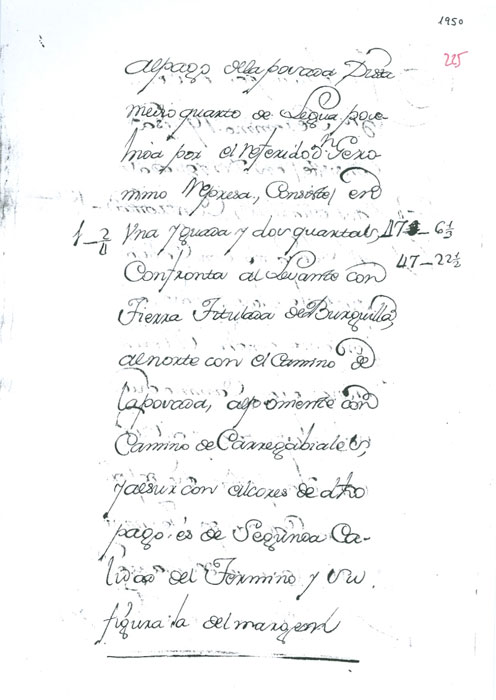 1950
225
al pago de la povada Dista
medio quarto de Legua, pose-
hida por el Referido Dn Gero-
nimo Represa, Consiste en
1 _ 2/4 Una Yguada y dos quartales, 47 _ 6 1/3
Confronta al Levante con 47 _ 22 1/2
Tierra Titulada de Burguilla,
al norte con el Camino de
la povada, al poniente con
Camino de Carregabiales,
y al sur con de dho
pago. es de Segunda Ca-
lidad del Termino y su
figura la del margen